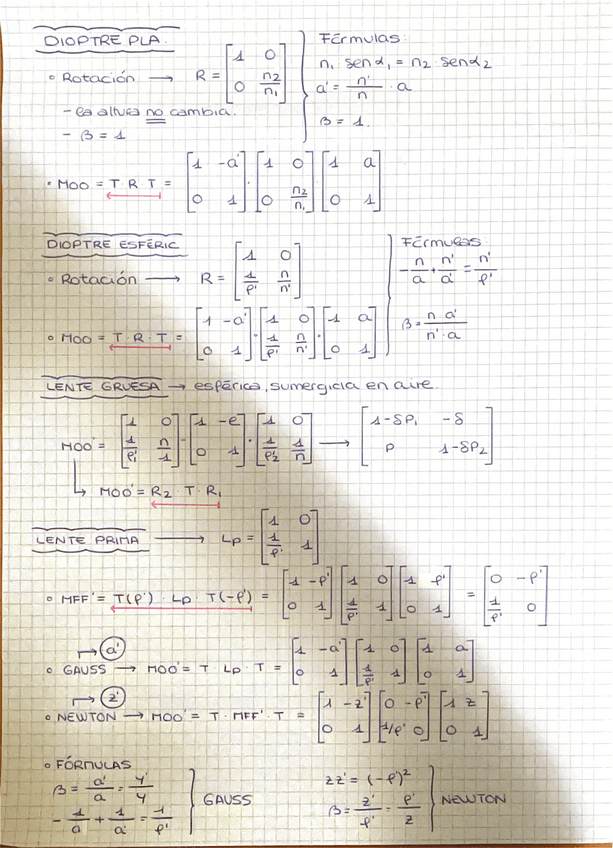 DIOPTRE PLA.
• Rotación → R = [1 0; 0 n2/n1]
- la altura no cambia.
- β = 1
Fórmulas:
n1 senα1 = n2 senα2
a' = n'/n · a
β = 1.
• MOO = T R T = [1 -a'; 0 1] · [1 0; 0 n2/n1] [1 a; 0 1]
DIOPTRE ESFÉRIC
• Rotación → R = [1 0; 1/f' n/n']
Fórmulas:
-n/a + n'/a' = n'/f'
β = n a'/n'·a
• MOO = T · R · T = [1 -a'; 0 1] · [1 0; 1/f' n/n'] · [1 a; 0 1]
LENTE GRUESA → esférica, sumergida en aire.
MOO' = [1 0; 1/f'1 n/1] · [1 -e; 0 1] · [1 0; 1/f'2 1/n] → [1-δP1 -δ; P 1-δP2]
↳ MOO' = R2 · T · R1
LENTE PRIMA → Lp = [1 0; 1/f' 1]
• MFF' = T(f') · Lp · T(-f') = [1 -f'; 0 1] [1 0; 1/f' 1] [1 f'; 0 1] = [0 -f'; 1/f' 0]
→ a'
• GAUSS → MOO' = T · Lp · T = [1 -a'; 0 1] [1 0; 1/f' 1] [1 a; 0 1]
→ z'
• NEWTON → MOO' = T · MFF' · T = [1 -z'; 0 1] [0 -f'; 1/f' 0] [1 z; 0 1]
• FÓRMULAS
β = a'/a = y'/y
-1/a + 1/a' = 1/f'
GAUSS
zz' = (-f')²
β = z'/f' = f'/z
NEWTON